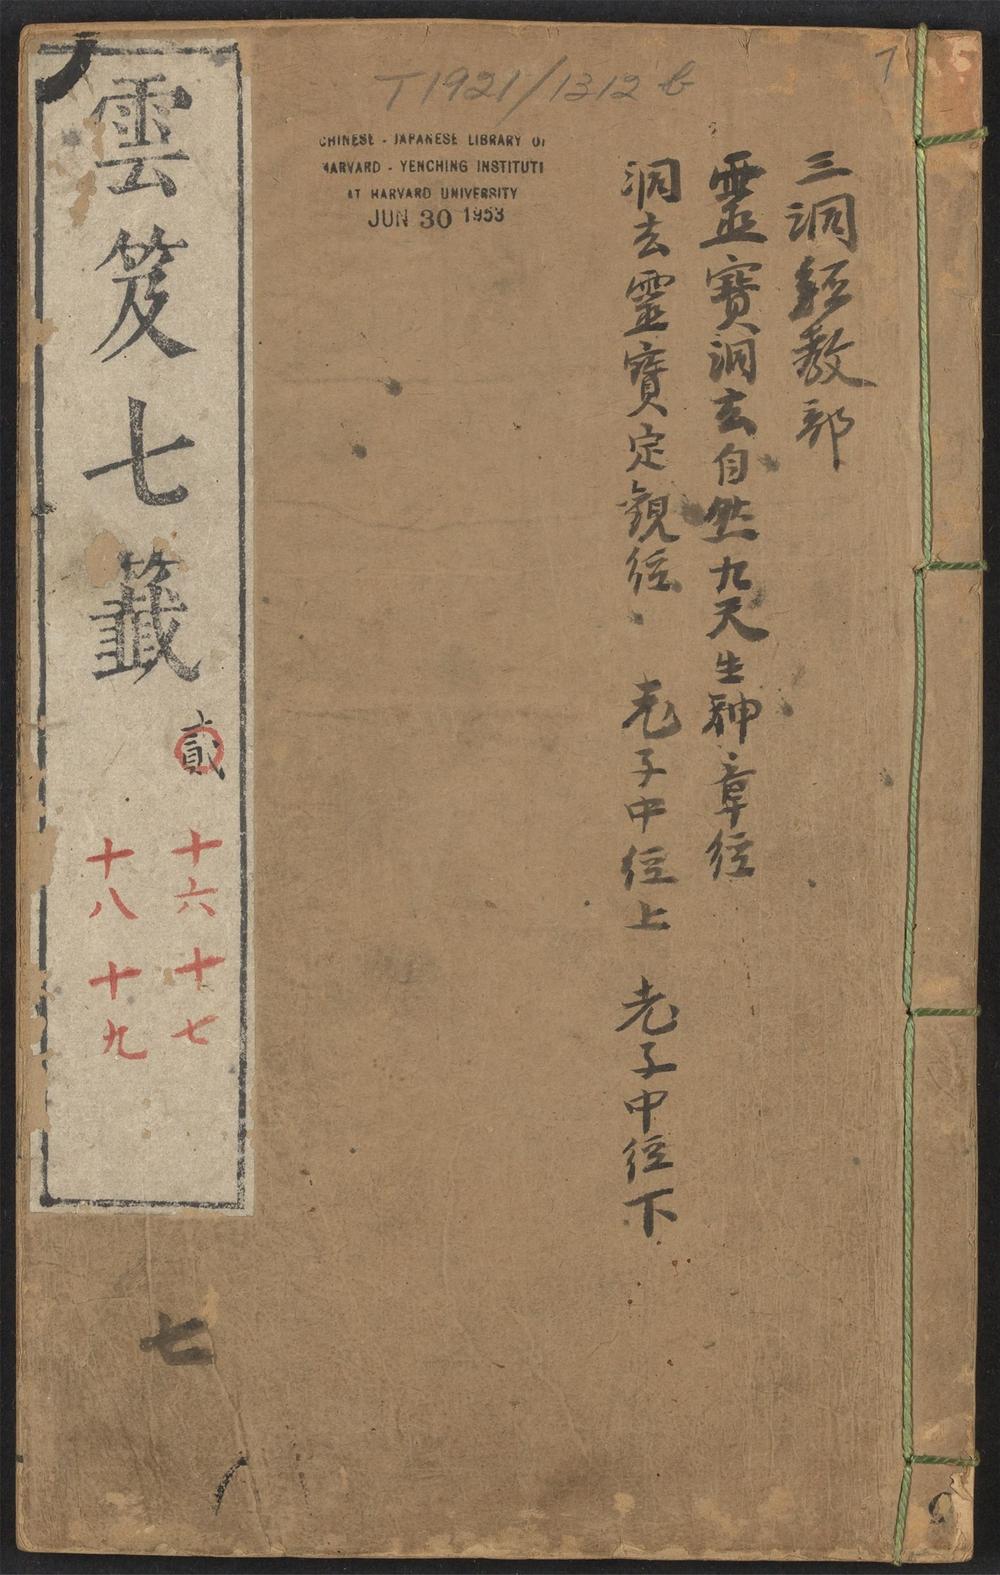 T1921/1312 b
7
CHINESE - JAPANESE LIBRARY OF
HARVARD - YENCHING INSTITUTE
AT HARVARD UNIVERSITY
JUN 30 1953
三洞經教部
靈寶洞玄自然九天生神章經
洞玄靈寶定觀經 老子中經上 老子中經下
雲笈七籤
貳
十六 十七
十八 十九
七